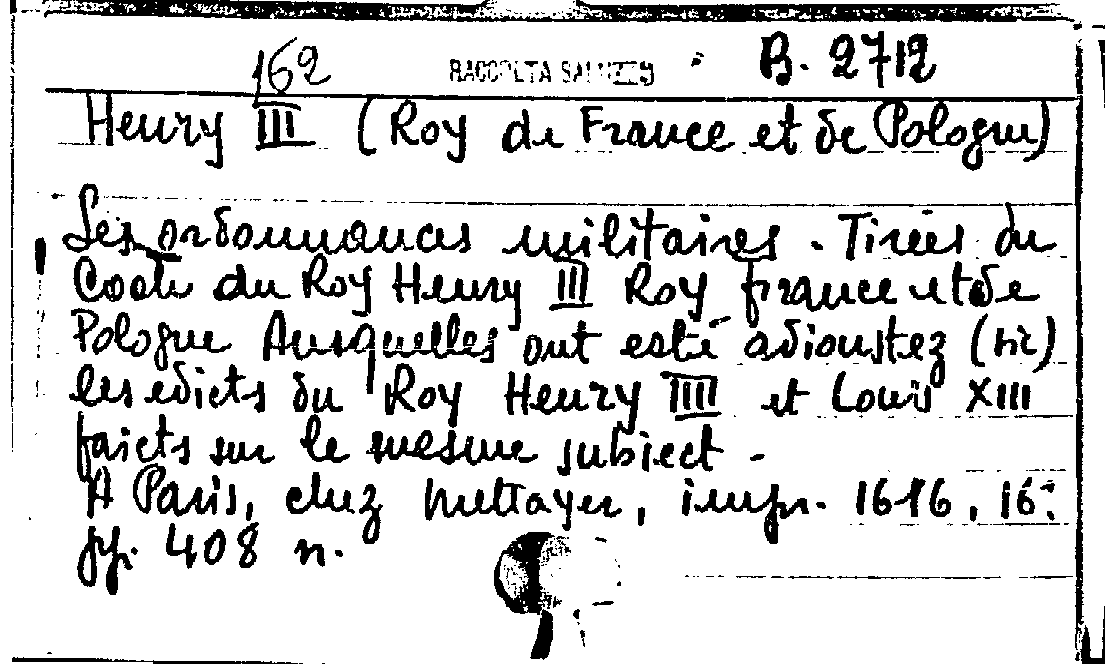 162 RACCOLTA SALUZZO B. 2712
Henry III (Roy de France et de Pologne)
Les ordonnances militaires. Tirées du
Code du Roy Henry III Roy france et de
Pologne Ausquelles ont esté adioustez (sic)
les edicts du Roy Henry IIII et Louis XIII
faicts sur le mesme subiect -
A Paris, chez Mettayer, impr. 1616, 16°:
pp. 408 n.